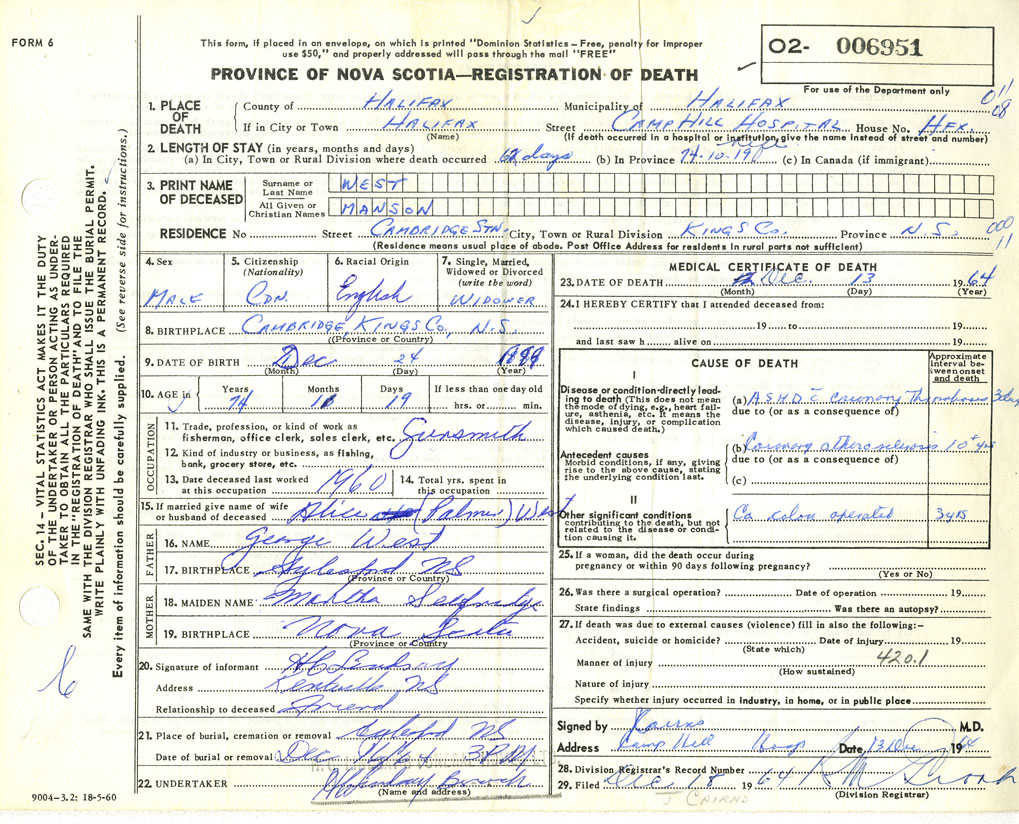 FORM 6
This form, if placed in an envelope, on which is printed "Dominion Statistics – Free, penalty for improper
use $50," and properly addressed will pass through the mail "FREE"
PROVINCE OF NOVA SCOTIA—REGISTRATION OF DEATH
02- 006951
For use of the Department only
011
08
1. PLACE OF DEATH
County of HALIFAX Municipality of HALIFAX
If in City or Town HALIFAX Street CAMP HILL HOSPITAL House No. HFX.
(Name) (If death occurred in a hospital or institution, give the name instead of street and number)
2. LENGTH OF STAY (in years, months and days)
(a) In City, Town or Rural Division where death occurred 62 days (b) In Province 74-10-19 life (c) In Canada (if immigrant)
3. PRINT NAME OF DECEASED
Surname or Last Name WEST
All Given or Christian Names MANSON
RESIDENCE No Street CAMBRIDGE STN. City, Town or Rural Division KINGS CO. Province N.S.
000
11
(Residence means usual place of abode. Post Office Address for residents in rural parts not sufficient)
4. Sex MALE
5. Citizenship (Nationality) CDN.
6. Racial Origin English
7. Single, Married, Widowed or Divorced (write the word) WIDOWER
8. BIRTHPLACE CAMBRIDGE, KINGS CO., N.S.
(Province or Country)
9. DATE OF BIRTH Dec 24
(Month) (Day) (Year)
10. AGE in Years 74 Months Days 19 If less than one day old hrs. or min.
OCCUPATION
11. Trade, profession, or kind of work as fisherman, office clerk, sales clerk, etc. Gunsmith
12. Kind of industry or business, as fishing, bank, grocery store, etc.
13. Date deceased last worked at this occupation 1960
14. Total yrs. spent in this occupation
15. If married give name of wife or husband of deceased Alice (Palmer) West
FATHER
16. NAME George West
17. BIRTHPLACE Aylesford NS
(Province or Country)
MOTHER
18. MAIDEN NAME Martha Selfridge
19. BIRTHPLACE Nova Scotia
(Province or Country)
20. Signature of informant H C Lindsay
Address Kentville NS
Relationship to deceased Friend
21. Place of burial, cremation or removal Aylesford NS
Date of burial or removal Dec 3 P.M.
22. UNDERTAKER
(Name and address)
9004-3.2: 18-5-60
SEC. 14—VITAL STATISTICS ACT MAKES IT THE DUTY
OF THE UNDERTAKER OR PERSON ACTING AS UNDER-
TAKER TO OBTAIN ALL THE PARTICULARS REQUIRED
IN THE "REGISTRATION OF DEATH" AND TO FILE THE
SAME WITH THE DIVISION REGISTRAR WHO SHALL ISSUE THE BURIAL PERMIT.
WRITE PLAINLY WITH UNFADING INK. THIS IS A PERMANENT RECORD.
Every item of information should be carefully supplied. (See reverse side for instructions.)
MEDICAL CERTIFICATE OF DEATH
23. DATE OF DEATH Dec. 13 1964
(Month) (Day) (Year)
24. I HEREBY CERTIFY that I attended deceased from:
19 to 19
and last saw h alive on 19
CAUSE OF DEATH
Approximate interval between onset and death
I
Disease or condition directly lead-
ing to death (This does not mean
the mode of dying, e.g., heart fail-
ure, asthenia, etc. It means the
disease, injury, or complication
which caused death.)
(a) A.S.H.D. c̄ Coronary Thrombosis 3 days
due to (or as a consequence of)
Antecedent causes
Morbid conditions, if any, giving
rise to the above cause, stating
the underlying condition last.
(b) Coronary atherosclerosis 10+ yrs
due to (or as a consequence of)
(c)
II
Other significant conditions
contributing to the death, but not
related to the disease or condi-
tion causing it.
Ca colon operated 3 yrs
25. If a woman, did the death occur during
pregnancy or within 90 days following pregnancy?
(Yes or No)
26. Was there a surgical operation? Date of operation 19
State findings Was there an autopsy?
27. If death was due to external causes (violence) fill in also the following:–
Accident, suicide or homicide? Date of injury 19
(State which)
Manner of injury 420.1
(How sustained)
Nature of injury
Specify whether injury occurred in industry, in home, or in public place
Signed by J Cairns M.D.
Address Camp Hill Hosp Date 13 Dec 1964
28. Division Registrar's Record Number
29. Filed Dec 18 1964
(Division Registrar)
J. CAIRNS